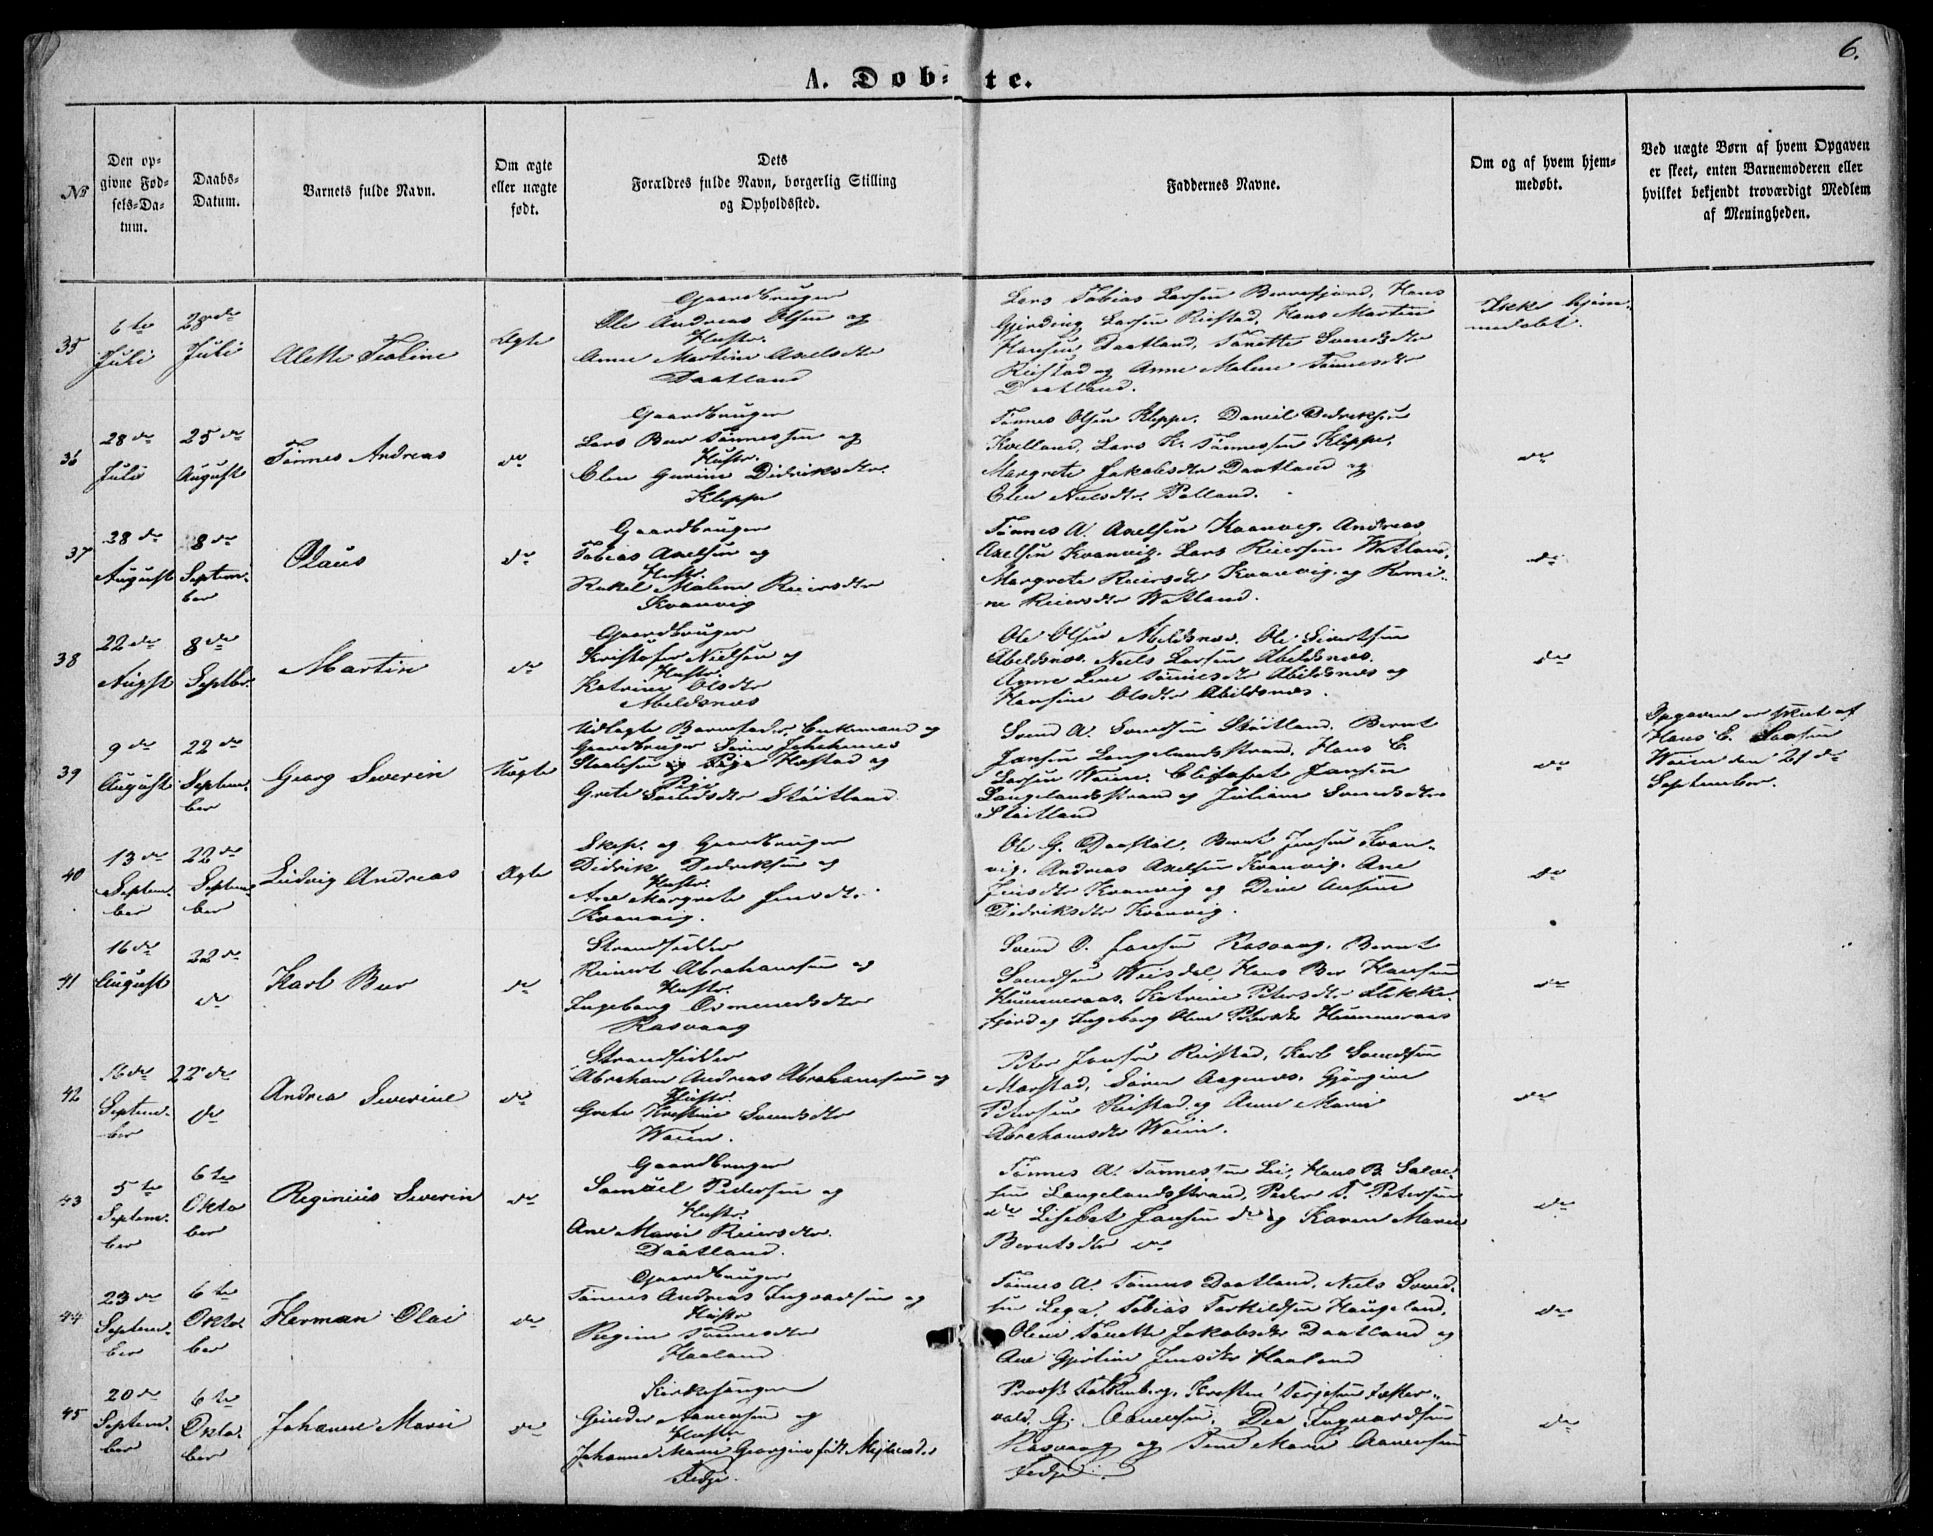 6.
A. Døb- te.
No
Den op-
givne Fød-
sels-Da-
tum.
Daabs-
Datum.
Barnets fulde Navn.
Om ægte
eller uægte
født.
Dets
Forældres fulde Navn, borgerlig Stilling
og Opholdssted.
Faddernes Navne.
Om og af hvem hjem-
medøbt.
Ved uægte Børn af hvem Opgaven
er skeet, enten Barnemoderen eller
hvilket bekjendt troværdigt Medlem
af Menigheden.
35
6te
Juli
28de
Juli
Alette Toline
Ægte
Gaardbruger
Ole Andreas Olsen og
Hustr.
Anne Martine Axelsdtr
Daatland
Lars Tobias Larsen Berrefjord, Hans
Gjerding Larsen Reistad, Hans Martin
Hansen Daatland, Tonette Svendsdtr
Reistad og Anne Malene Tønnesdtr
Daatland.
Ikke hjem-
medøbt.
36
28de
Juli
25de
August
Tønnes Andreas
do
Gaardbruger
Lars Ber Tønnessen og
Hustr.
Elen Gurine Didriksdtr.
Kleppe
Tønnes Olsen Kleppe, Daniel Didriksen
Kvelland, Lars K. Tønnessen Kleppe,
Margrete Jakobsdtr Daatland og
Elen Nielsdtr.
do
37
28de
August
8de
Septem-
ber
Olaus
do
Gaardbruger
Tobias Axelsen og
Hustr.
Rakel Malene Reiersdtr
Kvanvig
Tønnes A. Axelsen Kvanvig, Andreas
Axelsen Kvanvig, Lars Reiersen Watland,
Margrete Reiersdtr Kvanvig og
Reiersdtr Watland.
do
38
22de
Augst
8de
Septbr.
Martin
do
Gaardbruger
Kristofer Nielsen og
Hustr.
Katrine Olsdtr
Abeldsnæs
Ole Olsen Abeldsnæs, Ole Sivertsen
Abeldsnæs, Niels Larsen Abeldsnæs,
Anne Lene Tønnesdtr Abeldsnæs og
Hansine Olsdtr Abeldsnæs.
do
39
9de
August
22de
Septem-
ber
Georg Severin
Uægte
Udlagte Barnefader, Enkemand og
Gaardbruger Søren Johannes
Pige
Grete Svendsdtr Støitland
Svend A. Svendsen Støitland, Bernt
Jansen Langelandsstrand, Hans E.
Larsen Waien, Elisabet Jansen
Langelandsstrand og Juliane Svendsdtr
Støitland
do
Opgaven er skeet af
Hans E. Larsen
Waien den 21de
September.
40
13de
Septem-
ber
22de
Septem-
ber
Ludvig Andreas
Ægte
Skep. og Gaardbruger
Didrik Didriksen og
Hustr.
Ane Margrete Jensdtr.
Kvanvig.
Ole G. Daatland, Bernt Jensen Kvan-
vig, Andreas Axelsen Kvanvig, Ane
Jensdtr Kvanvig og
Didriksdtr Kvanvig.
do
41
16de
August
22de
do
Karl Ber
do
Strandsidder
Reinert Abrahamsen og
Hustr.
Ingeborg Osmundsdtr
Rasvaag
Svend O. Jansen Rasvaag, Bernt
Svendsen Veisdal, Hans Ber Hansen
Hummeraas, Katrine Petersdtr Flekke-
fjord og Ingeborg Oline Petersdtr Hummeraas
do
42
16de
Septem-
ber
22de
do
Andrea Severine
do
Strandsidder
Abraham Andreas Abrahamsen og
Hustr.
Grete Kristine Svendsdtr
Waien.
Peter Jansen Reistad, Karl Svendsen
Marstad, Søren Aagenæs, Gjørgine
Petersen Reistad og Anne Marie
Abrahamsdtr Waien.
do
43
5te
Septem-
ber
6te
Okto
ber
Reginius Severin
do
Gaardbruger
Samuel Pedersen og
Hustr.
Ane Marie Reiersdtr.
Daatland.
Tønnes A. Tønnessen Lie, Hans B. Salve-
sen Langelandsstrand, Peder T. Petersen
do Lisebet Jansen do og Karen Marie
Berntsdtr do
do
44
23de
Septem-
ber
6te
Okto-
ber
Herman Olai
do
Gaardbruger
Tønnes Andreas Ingvaldsen og
Hustr
Regine Tønnesdtr
Haaland
Tønnes A. Tønnes Daatland, Niels Svend-
sen Lega, Tobias Torkildsen Haugeland,
Oline Tonette Jakobsdtr Daatland og
Ane Gjertine Jensdtr Haaland
do
45
20de
Septem-
ber
6te
Okto-
ber
Johanne Marie
do
Kirkesanger
Gunder Aanensen og
Hustr
Johanne Marie Georgine født
Fedje.
Provst Falkenberg, Kristen Terjesen
G. Aanensen, Ingvardsen
Rasvaag og Tine Marie Aanensen
Fedje.
do